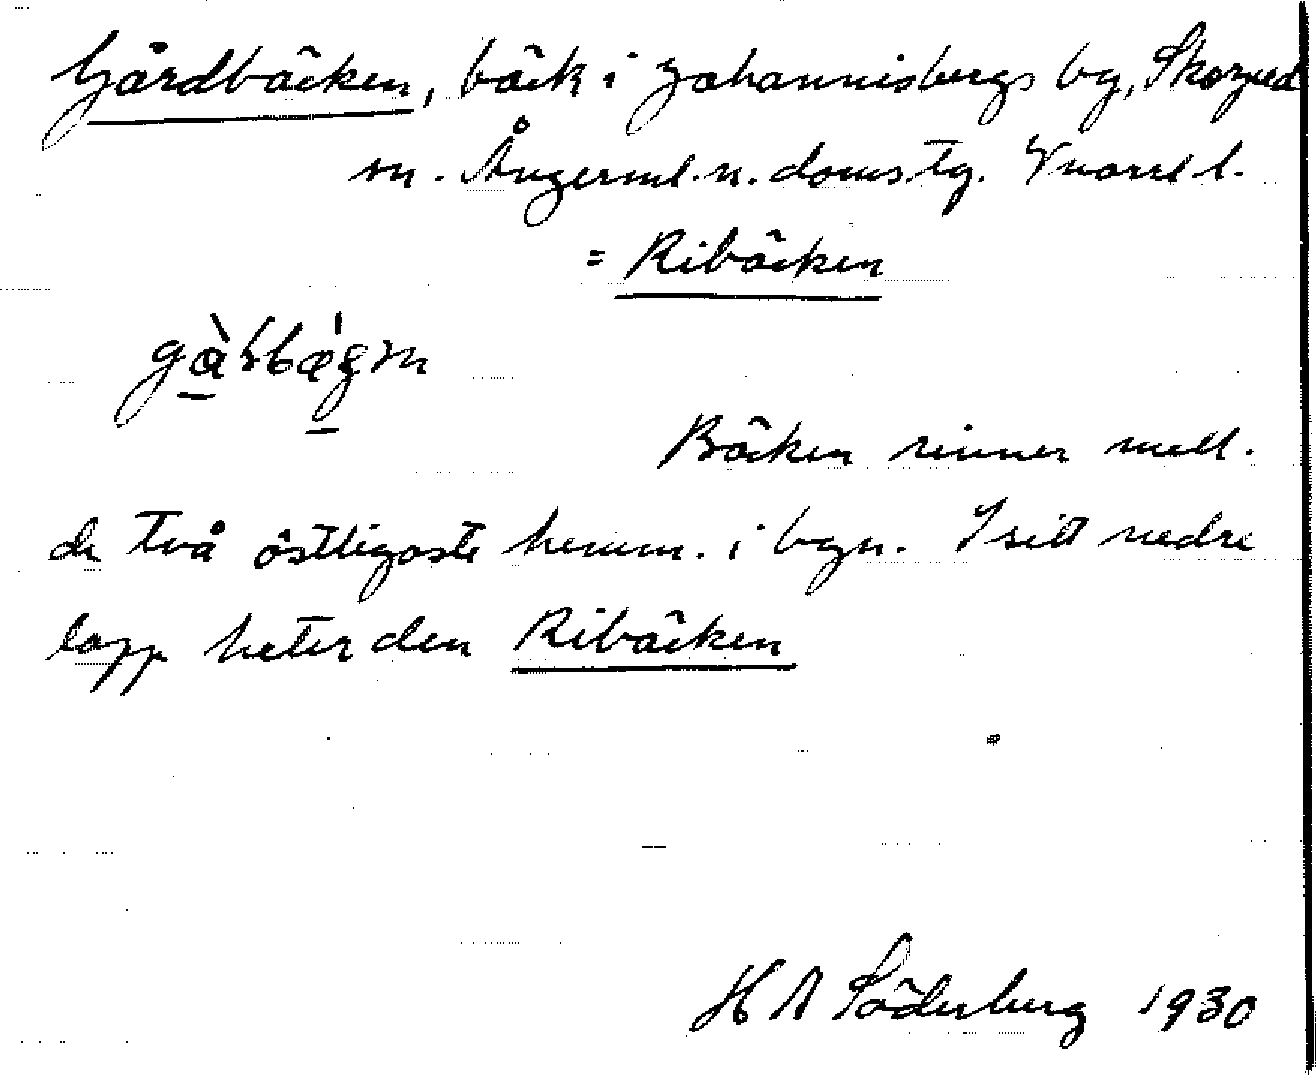 Gårdbäcken, bäck i Johannisbergs by, Skorped
sn. Ångerml. n. domstg. Vnorrl l.
= Ribäcken
Bäcken rinner mell.
de två östligaste hemm. i byn. I sitt nedre
lopp heter den Ribäcken
H A Söderberg 1930